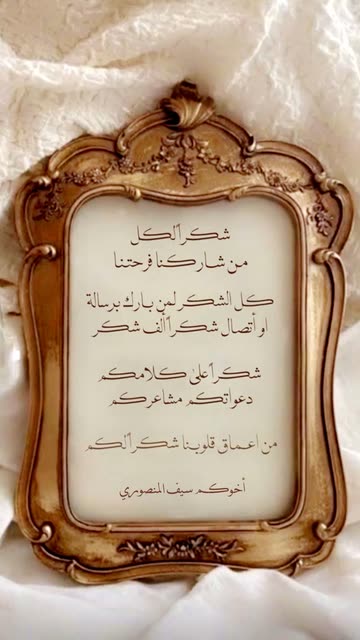 شكراً لكل
من شاركنا فرحتنا
كل الشكر لمن بارك برسالة
او أتصال شكراً ألف شكر
شكراً على كلامكم
دعواتكم مشاعركم
من اعماق قلوبنا شكراً لكم
أخوكم سيف المنصوري